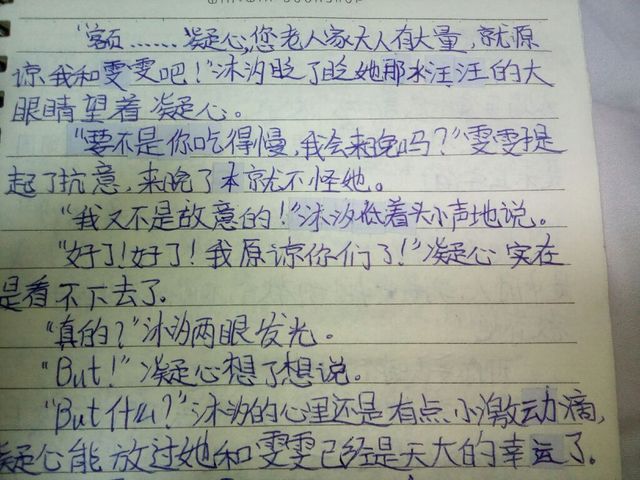 “额……凝心,您老人家大人有大量,就原
谅我和雯雯吧!”沐汐眨了眨她那水汪汪的大
眼睛望着凝心。
“要不是你吃得慢,我会来晚吗?”雯雯于是
起了抗意,来晚了本就不怪她。
“我又不是故意的!”沐汐低着头小声地说。
“好了!好了!我原谅你们了!”凝心实在
是看不下去了.
“真的?”沐汐两眼发光。
“But!”凝心想了想说。
“But什么?”沐汐的心里还是有点小激动滴,
凝心能放过她和雯雯已经是天大的幸运了.